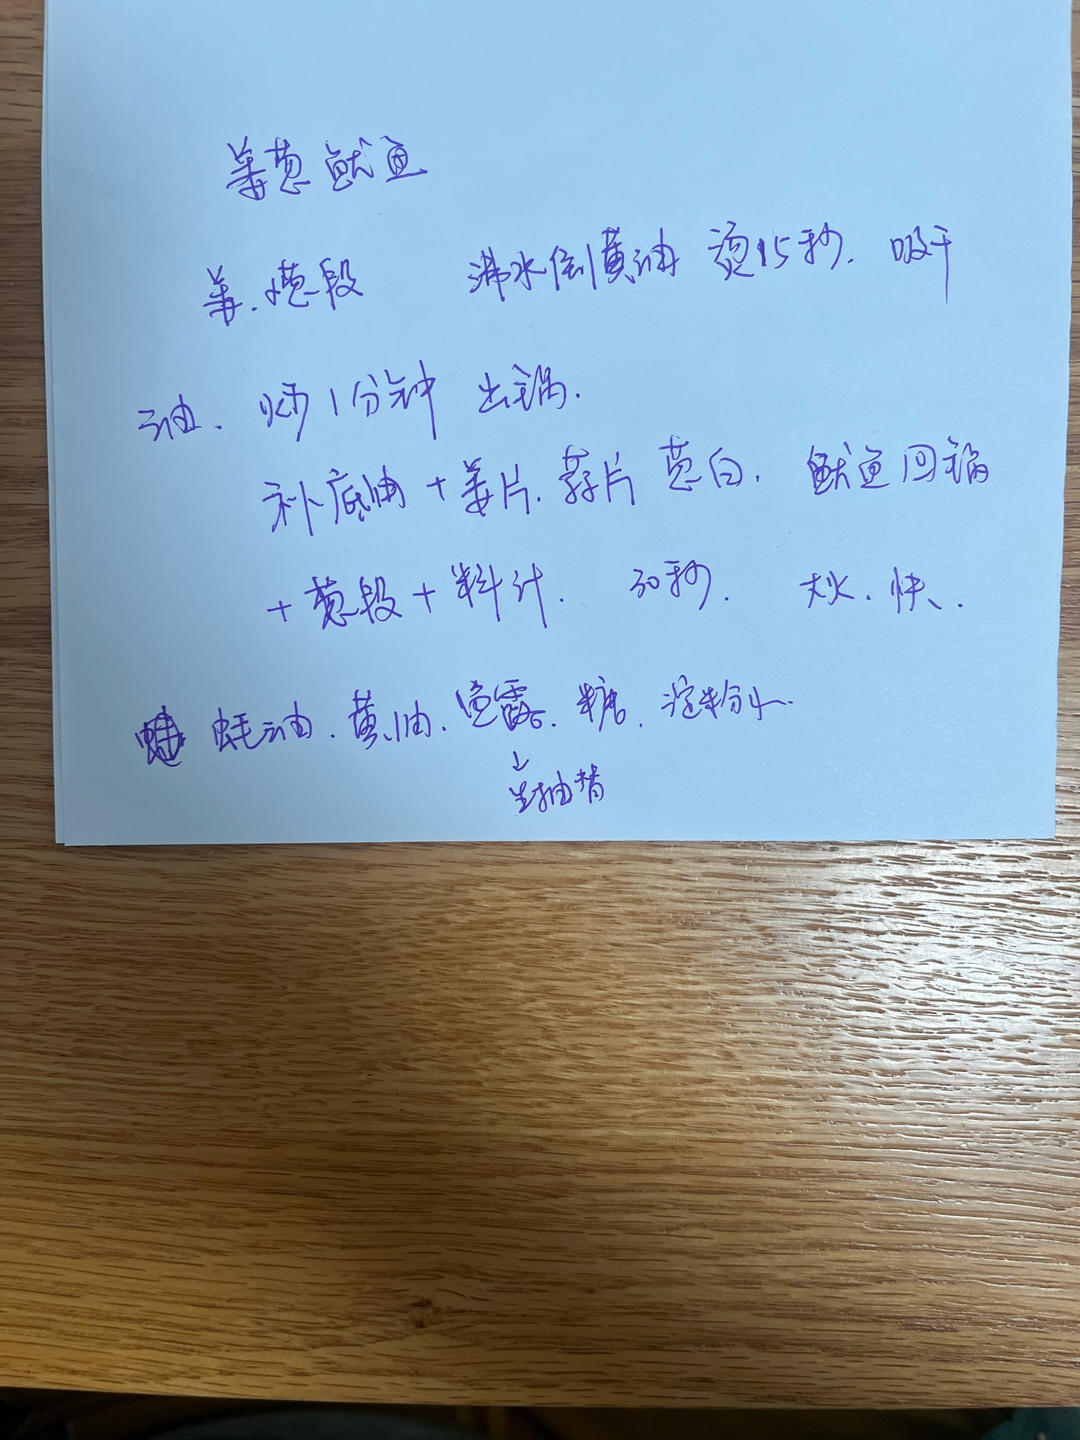 姜葱鱿鱼
姜.葱段 沸水倒黄油 烫15秒. 吸干
油. 炒1分钟 出锅.
补底油+姜片.蒜片 葱白. 鱿鱼回锅
+葱段+料汁. 30秒. 大火.快.
蚝油.黄油.鱼露.糖.淀粉水.
↓
生抽替